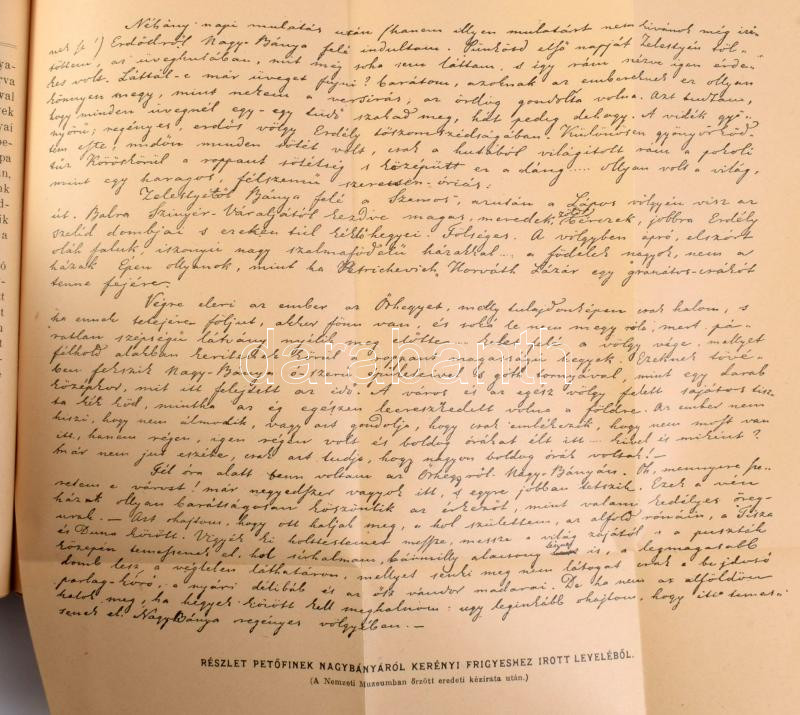 Néhány napi mulatás után (hanem illyen mulatást nem kivánok még iré-
nek se!) Erdődről Nagy-Bánya felé indultam. Pünkösd első napját Zelestyén töl-
töttem, az üveghutában, mit még soha sem láttam, s igy rám nézve igen érde-
kes volt. Láttál-e már üveget fujni? barátom, azoknak az embereknek ez ollyan
könnyen megy, mint nekem a versirás; az ördög gondolta volna. Azt tudtam,
hogy minden üvegnél egy-egy tüdő szakad meg, hát pedig dehogy. A vidék gyö-
nyörü; regényes, erdős völgy Erdély tőszomszédságában. Különösen gyönyörköd-
tem este, midőn minden sötét volt, csak a hutából világitott rám a pokoli
tűz. Köröskörül a roppant sötétség s középütt ez a láng.... ollyan volt a világ,
mint egy haragos, félszemü szerecsen-óriás.
Zelestyétől Bánya felé a Szamos-, azután a Lápos völgyén visz az
út. Balra Szinyér-Váraljától kezdve magas, meredek bérczek, jobbra Erdély
szelid dombjai s ezeken túl kéklő hegyei. Fölséges. A völgyben apró, elszórt
oláh faluk, iszonyú nagy szalmafödelü házakkal... a födelek nagyok, nem a
házak. Épen ollyanok, mint ha Petrichevich Horváth Lázár egy gránátos-csákót
tenne fejére.
Végre eléri az ember az Őrhegyet, melly tulajdonképen csak halom, s
ha ennek tetejére följut, akkor fönn van, és soká le nem megy róla, mert pá-
ratlan szépségü látvány nyúlik meg előtte... balfelől a völgy vége, mellyet
félhold alakban keritenek körül a roppant magasságu hegyek. Ezeknek tövé-
ben fekszik Nagy-Bánya ó szerü épületeivel s góth tornyával, mint egy darab
középkor, mit itt felejtett az idő. A város és az egész völgy felett sajátos tisz-
ta kék köd, mintha az ég egészen leereszkedett volna a földre. Az ember nem
hiszi, hogy nem álmodik, vagy azt gondolja, hogy csak emlékezik, hogy nem most van
itt, hanem régen, igen régen volt és boldog órákat élt itt... kivel és miként?
már nem jut eszébe, csak azt tudja, hogy nagyon boldog órák voltak!—
Fél óra alatt benn voltam az Őrhegyről Nagy-Bányán. Oh, mennyire sze-
retem e várost! már negyedszer vagyok itt, s egyre jobban tetszik. Ezek a vén
házak ollyan barátságosan köszöntik az érkezőt, mint valami kedélyes öreg-
urak. — Azt ohajtom, hogy ott haljak meg, a hol születtem, az alföld rónáin, a Tisza
és Duna között. Vigyék ki holttestemet messze, messze a világ zajától s a puszták
közepén temessenek el, hol sirhalmam, bármilly alacsony lesz is, a legmagasabb
domb lesz a végtelen láthatáron, mellyet senki meg nem látogat csak a bujdosó
parlag-kóró, a nyári délibáb és az ősz vándor madarai. De ha nem az alföldön
halok meg, ha hegyek között kell meghalnom: ugy leginkább ohajtom, hogy itt temes-
senek el Nagybánya regényes völgyében. —
RÉSZLET PETŐFINEK NAGYBÁNYÁRÓL KERÉNYI FRIGYESHEZ IROTT LEVELÉBŐL.
(A Nemzeti Muzeumban őrzött eredeti kézirata után.)
darabanth